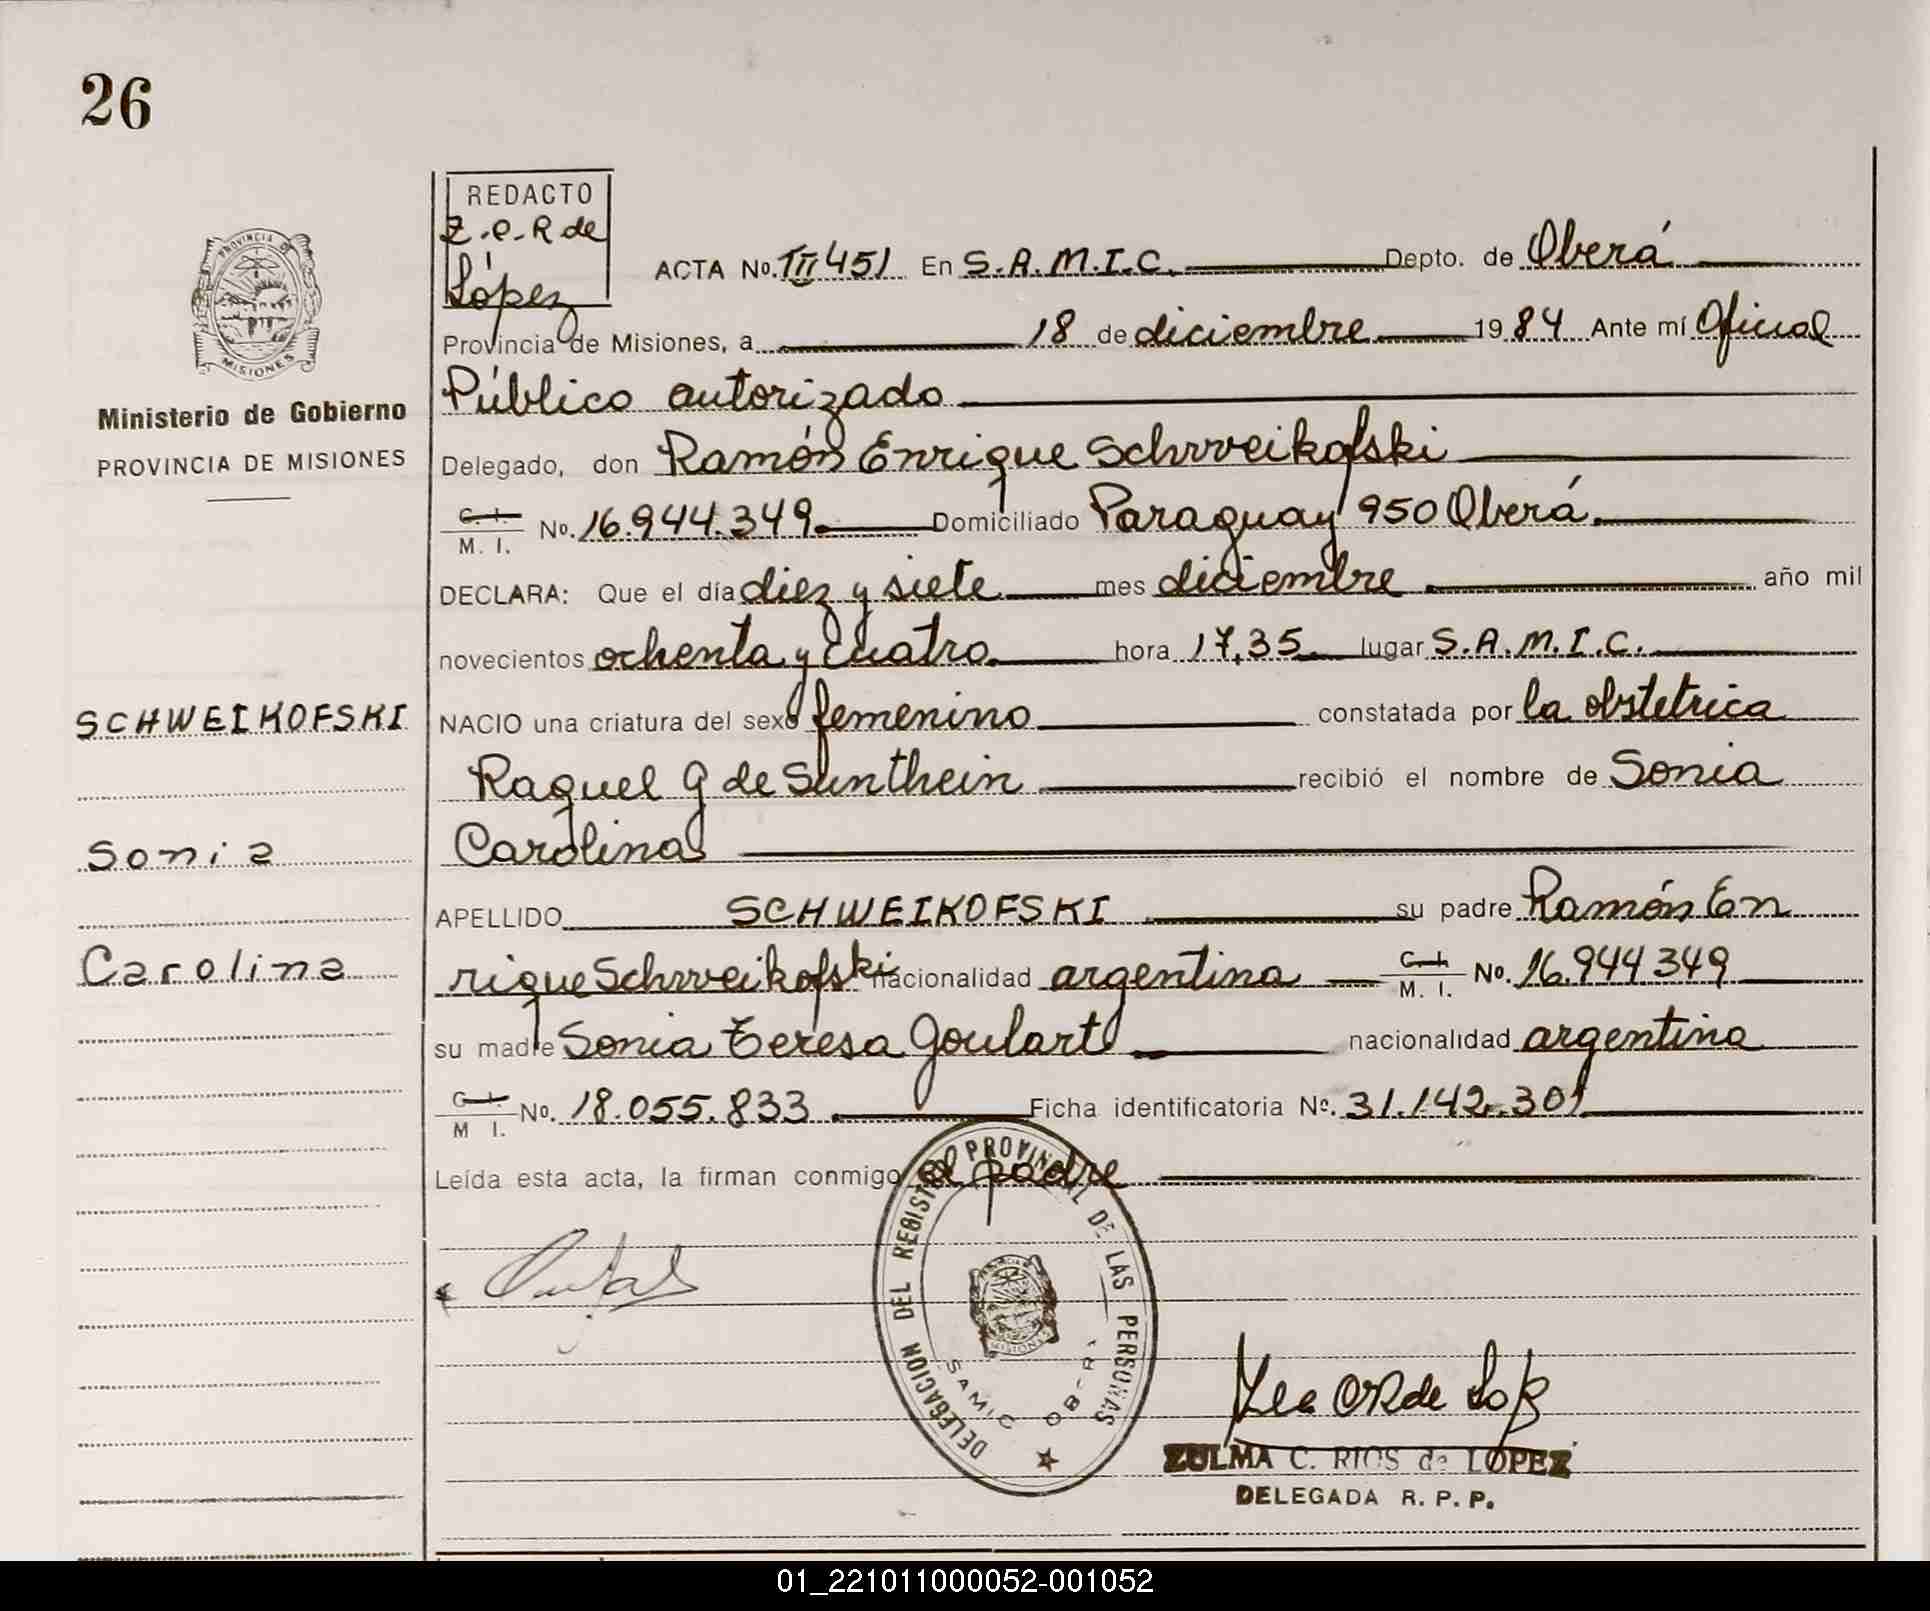 26
REDACTO
Z.C.R de
López
ACTA No. III 451 En S.A.M.I.C. Depto. de Oberá
Provincia de Misiones, a 18 de diciembre 1984 Ante mí Oficial
Público autorizado
Ministerio de Gobierno
PROVINCIA DE MISIONES
Delegado, don Ramón Enrique Schweikofski
C. I.
M. I. No. 16.944.349 Domiciliado Paraguay 950 Oberá.
DECLARA: Que el día diez y siete mes diciembre año mil
novecientos ochenta y cuatro hora 17,35 lugar S.A.M.I.C.
SCHWEIKOFSKI
NACIO una criatura del sexo femenino constatada por la obstetrica
Raquel G de Sunthein recibió el nombre de Sonia
Sonia
Carolina
APELLIDO SCHWEIKOFSKI su padre Ramón En
Carolina
rique Schweikofski nacionalidad argentina C. I.
M. I. No. 16.944349
su madre Sonia Teresa Goulart nacionalidad argentina
C. I.
M I. No. 18.055.833 Ficha identificatoria No. 31.142.301
Leída esta acta, la firman conmigo el padre
PROVINCIA DE
MISIONES
DELEGACION DEL REGISTRO PROVINCIAL DE LAS PERSONAS
SAMIC
ZULMA C. RIOS de LOPEZ
DELEGADA R. P. P.
01_221011000052-001052